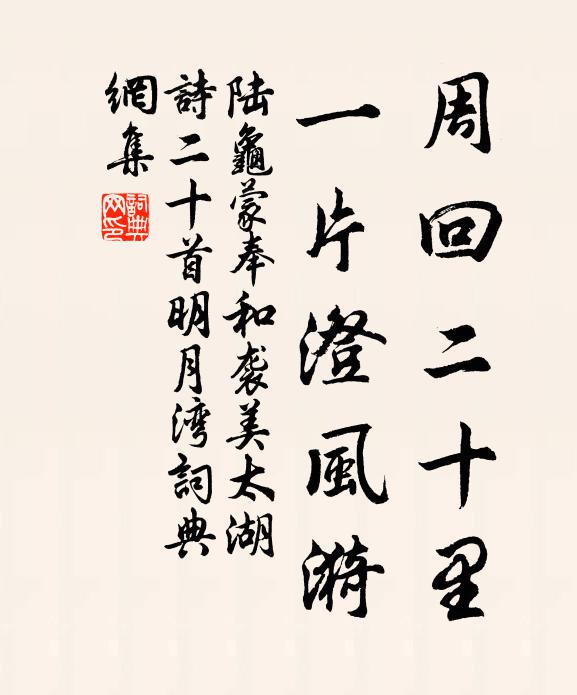 周回二十里
一片澄風漪
陆龜蒙奉和袭美太湖
詩二十首明月湾詞典
網集
詞典网印